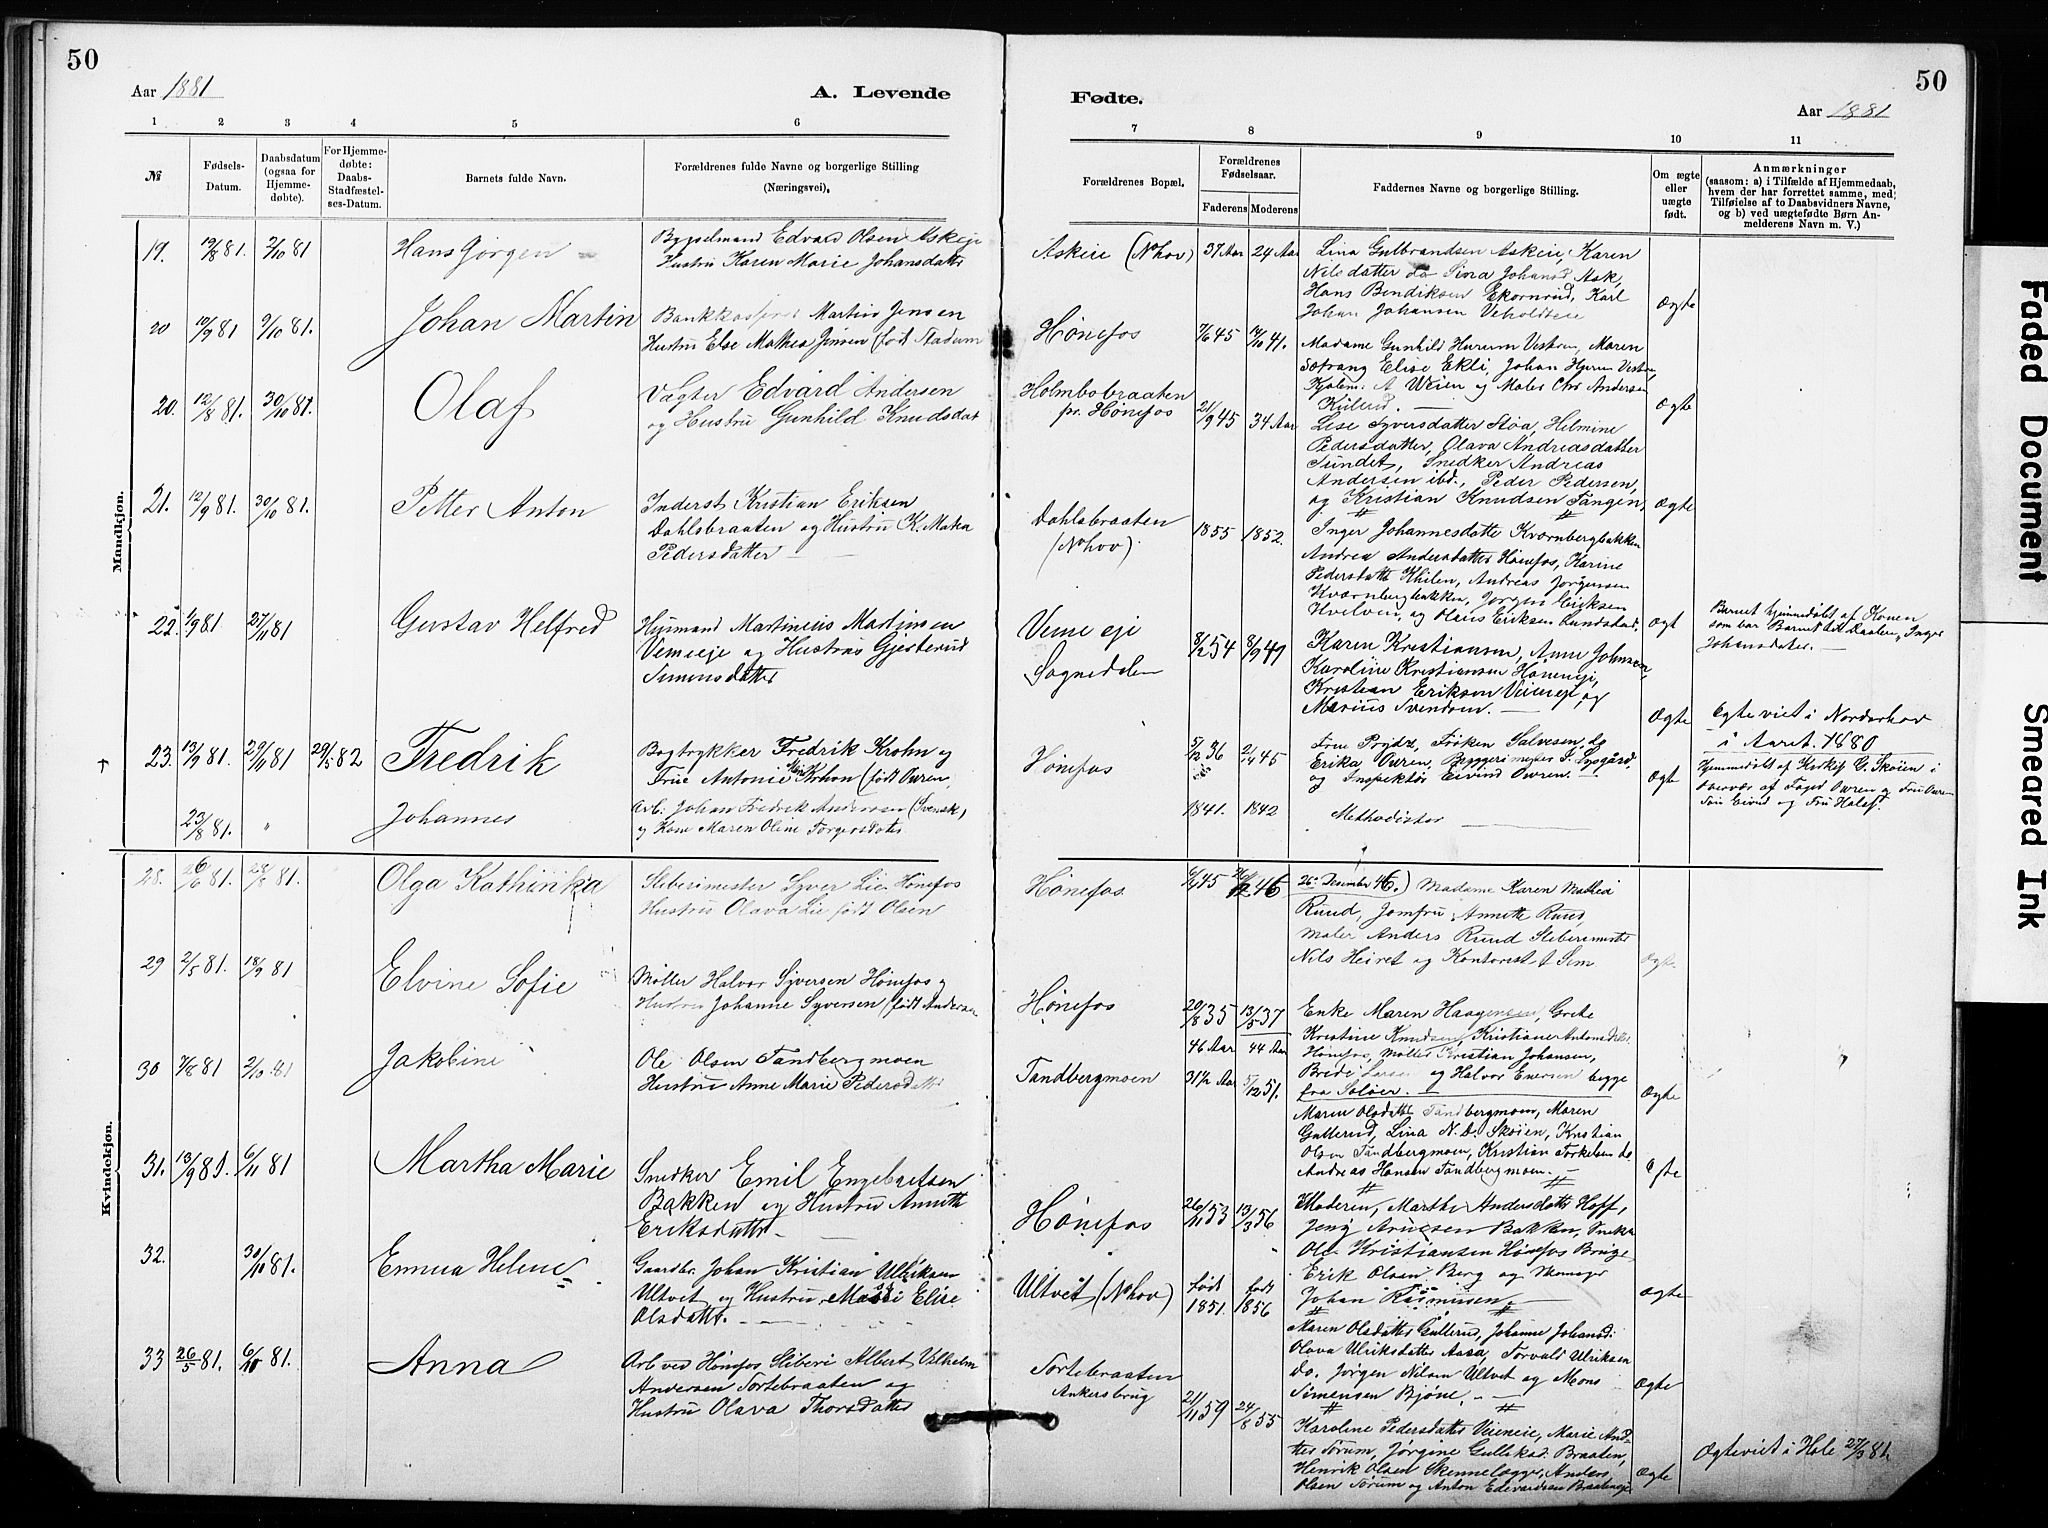 50
Aar 1881
A. Levende
1 2 3 4 5 6
№
Fødsels-
Datum.
Daabsdatum
(ogsaa for
Hjemme-
døbte).
For Hjemme-
døbte:
Daabs-
Stadfæstel-
ses-Datum.
Barnets fulde Navn.
Forældrenes fulde Navne og borgerlige Stilling
(Næringsvei).
Mandkjøn.
19. 12/8 81. 2/10 81 Hans Jørgen
Bygselmand Edvard Olsen Askeje
Hustru Karen Marie Johansdatter
20 10/9 81 9/10 81. Johan Martin
Martin Jensen
Hustru Else Mathea Jensen (født Stadum
20. 12/8 81. 30/10 81. Olaf
Vægter Edvard Andersen
og Hustru Gunhild Knudsdat
21. 12/9 81. 30/10 81. Petter Anton
Inderst Kristian Eriksen
Dahlsbraaten og Hustru K. Mathea
Pedersdatter
22. 1/9 81 27/11 81 Gustav Helfred
Husmand Martineus Martinsen
Vemeeje og Hustru Gjesterud
Simensdatter
23. 13/9 81. 29/11 81 29/5 82 Fredrik
Bogtrykker Fredrik Krohn og
Frue Antonie Krhon (født Ouren,
23/8 81. " Johannes
Arb. Johan Fredrik Anderssen (Svensk,
og Kone Maren Oline Torgersdatter
Kvindekjøn.
28. 26/6 81. 28/8 81. Olga Kathinka
Sliberimester Syver Lie Hønefos
Hustru Olava Lie født Olsen
29 2/5 81. 18/9 81 Elvine Sofie
Møller Halvor Syversen Hønefos og
Hustru Johanne Syversen (født Andersen
30 7/8 81 2/10 81 Jakobine
Ole Olsen Tandbergmoen
Hustru Anne Marie Pedersdatter
31. 13/9 81. 6/11 81 Martha Marie
Snedker Emil Engebretsen
Bakken og Hustru Annette
Eriksdatter
32. 30/10 81. Emma Helene
Gaardbr. Johan Kristian Ulriksen
Ultvet og Hustru Massi Elise
Olsdatter.
33 26/5 81. 6/10 81. Anna
Arb ved Hønefos Sliberi Albert Vilhelm
Andersen Tortebraaten og
Hustru Olava Thorsdatter
50
Fødte.
Aar 1881
7 8 9 10 11
Forældrenes Bopæl.
Forældrenes
Fødselsaar.
Faderens Moderens
Faddernes Navne og borgerlige Stilling.
Om ægte
eller
uægte
født.
Anmærkninger
(saasom: a) i Tilfælde af Hjemmedaab,
hvem der har forrettet samme, med
Tilføielse af to Daabsvidners Navne,
og b) ved uægtefødte Børn An-
melderens Navn m. V.)
Askeie (Nhov) 37 Aar 24 Aar
Lina Gulbrandsen Askeie, Karen
Nilsdatter do Sina Johansd Ask,
Hans Bendiksen Ekornrud, Karl
Johan Johansen Veholdteie
Ægte
Hønefos 7/6 45 14/10 41.
Madame Gunhild Hurum Vestern, Maren
Søtrang Elise Ekli, Johan Hurum Vestern,
A Weien og Maler Chr Andersen
Ægte
Holmbobraaten
pr. Hønefos
21/9 45 34 Aar
Lise Syversdatter Støa, Helmine
Pedersdatter, Olava Andreasdatter
Sundet, Snedker Andreas
Andersen ibd., Peder Pedersen,
og Kristian Knudsen Tangen.
Ægte
Dahlsbraaten
(Nhov).
1855 1852.
Inger Johannesdatte Kvernbergbakken
Andrea Andersdatter Hønefos, Karine
Pedersdatt Khilen, Andreas Jørgensen
Kværnbergbakken, Jørgen Eriksen
Hvelven, og Olaus Eriksen Lundstad.
Ægt
Barnet hjemmedøbt af Konen
som bar Barnet til Daaben, Inger
Johansdater.
Veme eje
Sognedalen
8/2 54 8/9 49
Karen Kristiansen, Anne Johnsen,
Karoline Kristiansen Høneneje,
Kristian Eriksen Veieneje, og
Marius Svendsen.
Ægte
Ægteviet i Norderhov
i Aaret 1880
Hønefos
5/12 36 2/4 45
Frue Prydz, Frøken Salvesen, do
Erika Ouren, Byggerimester F. Lysgård,
og Inspektør Eivind Ouren.
Ægte
Hjemmedøbt af Kirks C. Skøien i
overvær af Foged Ouren og Fru Ouren
Fru Eivind og Fru Halef.
1841. 1842
Methodister
Hønefos 6/4 45 26/12 46
26de Desember 46.) Madame Karen Mathea
Ruud, Jomfru Annette Ruud,
maler Anders Ruud Sliberimester
Nils Heiret og Kontorest A Sem
Ægte.
Hønefos
20/8 35 13/5 37
46 Aar 44 Aar
Enke Maren Haagensen, Grete
Kristine Knudsen, Kristiane Antonsdatter
Hønefos, Møller Kristian Johansen,
Brede Larsen og Halvor Enersen begge
fra Soløer.
Ægte
Tandbergmoen 31½ Aar 5/12 51.
Maren Olsdatter Tandbergmoen, Maren
Gullerud, Lina N. D. Skøien, Kristian
Olsen Tandbergmoen, Kristian Torkelsen do
Andreas Hansen Tandbergmoen.
Ægte
Hønefos 26/11 53 13/3 56
Moderen, Marthe Andersdatter Hoff,
Jeny Arnesen Bakken, Snekker
Ole Kristiansen Hønefos Bruge,
Erik Olsen Berg og
Johan Rasmusen
Ægte
Ultvet (Nhov)
født født
1851. 1856
Maren Olsdatter Gullerud, Johanne Johansd:
Olava Ulriksdatter Aasa, Torvald Ulriksen
do. Jørgen Nilsen Ultvet og Mons
Simensen Bjøne.
Ægte
Tortebraaten
Ankersbrug
21/11 59 24/8 55
Karoline Pedersdatter Veieneie, Marie And-
tter Sørum, Jørgine Gullsksd. Braaten,
Henrik Olsen Skennelægger, Anders
Olsen Sørum og Anton Edevardsen Braateneje
Ægte
Ægteviet i Hole 27/3 81.
Faded Document
Smeared Ink